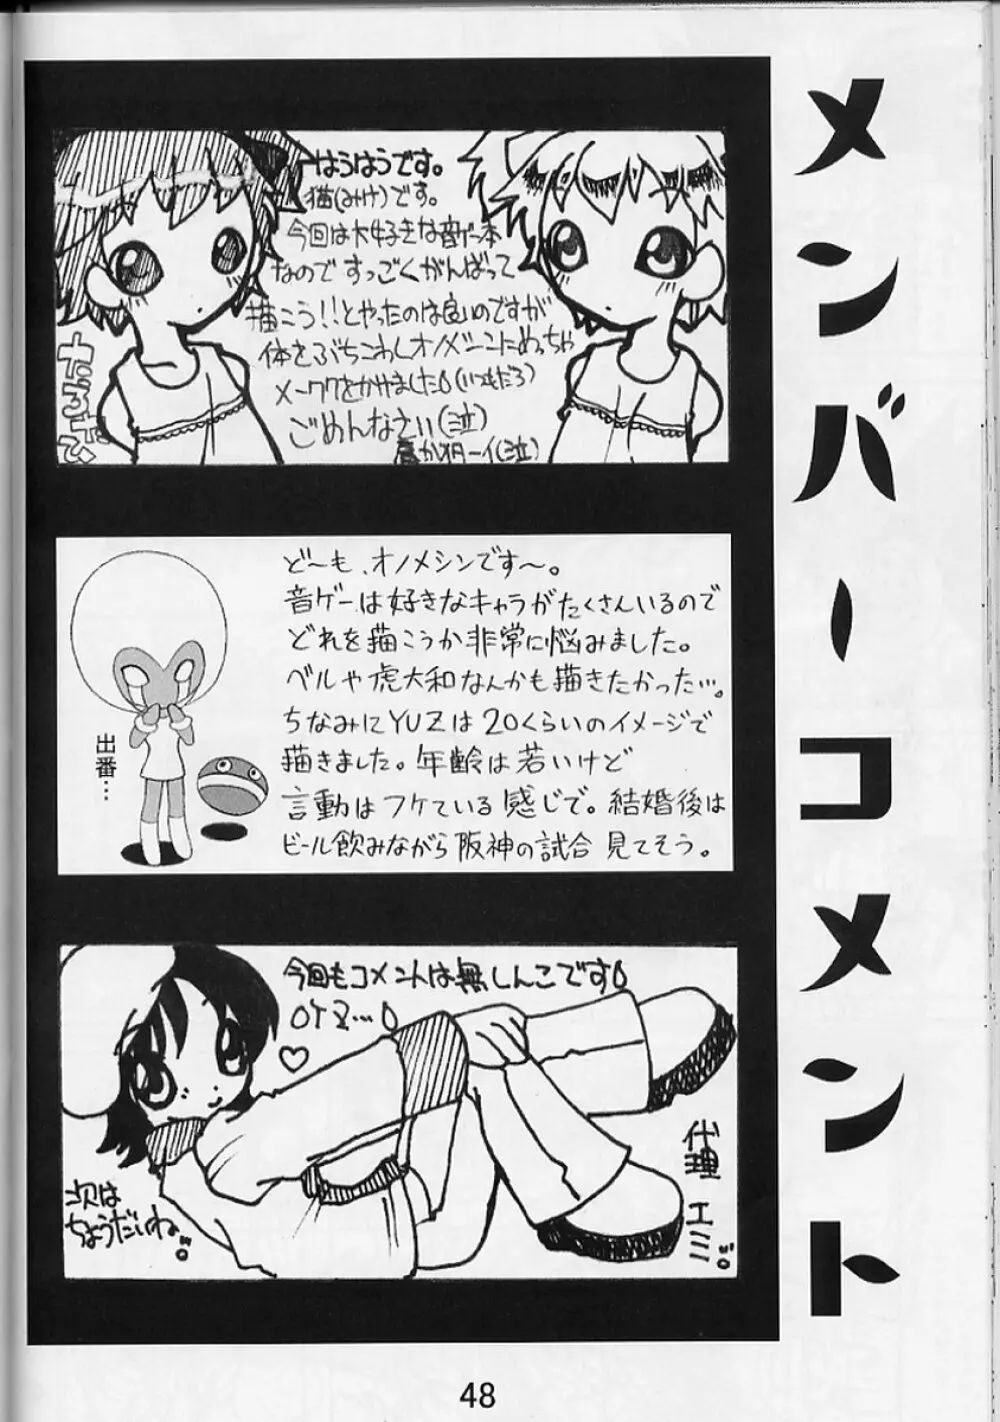 メンバーコメント
はうはうです。
猫(みけ)です。
今回は大好きな音ゲー本
なのですっごくがんばって
描こう!!とやったのは良いのですが
体をぶちこわしオノメシンにめっちゃ
メーワクをかけました(いつもだろ)
ごめんなさい(泣)
ど〜も、オノメシンです〜。
音ゲーは好きなキャラがたくさんいるので
どれを描こうか非常に悩みました。
ベルや虎大和なんかも描きたかった…。
ちなみにYUZは20くらいのイメージで
描きました。年齢は若いけど
言動はフケている感じで。結婚後は
ビール飲みながら阪神の試合見てそう。
出番…
今回もコメントは無しんこです
♡
次は
ちょうだいね
代理 エミ
48